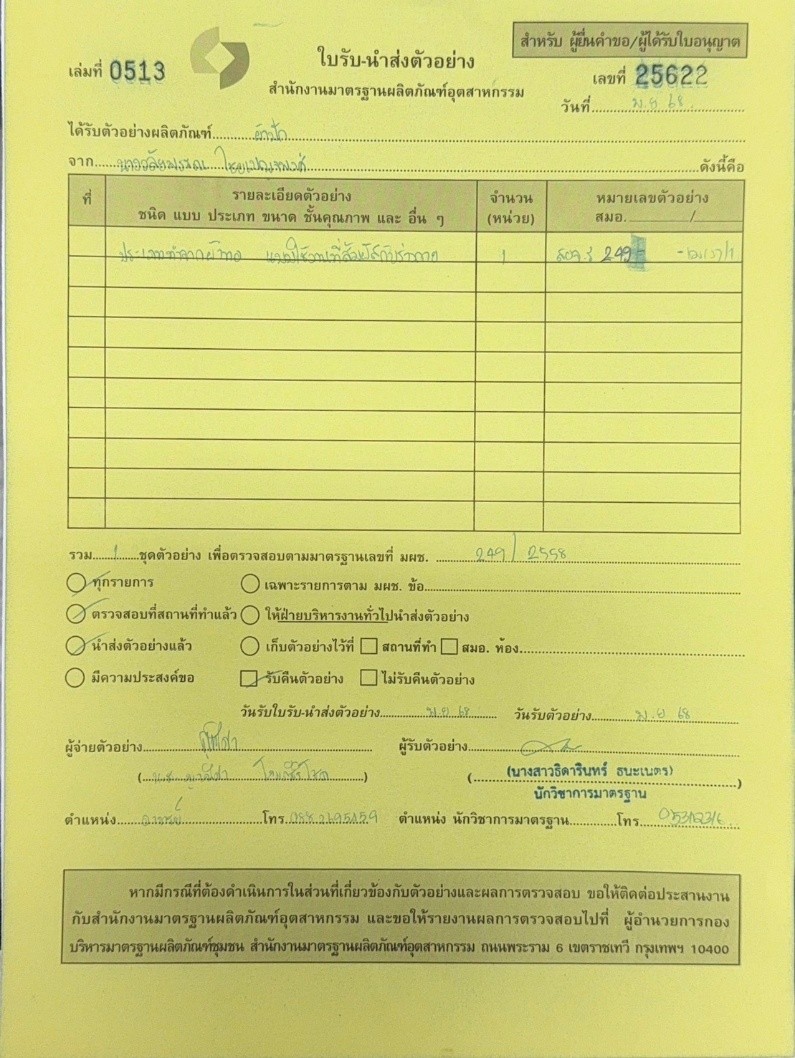 สำหรับ ผู้ยื่นคำขอ/ผู้ได้รับใบอนุญาต
ใบรับ-นำส่งตัวอย่าง
เล่มที่ 0513
เลขที่ 25622
สำนักงานมาตรฐานผลิตภัณฑ์อุตสาหกรรม
วันที่ พ.ย 68
ได้รับตัวอย่างผลิตภัณฑ์
จาก ดังนี้คือ
ที่ รายละเอียดตัวอย่าง จำนวน หมายเลขตัวอย่าง
ชนิด แบบ ประเภท ขนาด ชั้นคุณภาพ และ อื่น ๆ (หน่วย) สมอ. /
ประเภททำจากผ้าทอ แบบใช้งานที่สัมผัสกับร่างกาย 1 249
รวม 1 ชุดตัวอย่าง เพื่อตรวจสอบตามมาตรฐานเลขที่ มผช. 249 / 2558
ทุกรายการ เฉพาะรายการตาม มผช. ข้อ
ตรวจสอบที่สถานที่ทำแล้ว ให้ฝ่ายบริหารงานทั่วไปนำส่งตัวอย่าง
นำส่งตัวอย่างแล้ว เก็บตัวอย่างไว้ที่ สถานที่ทำ สมอ. ห้อง
มีความประสงค์ขอ รับคืนตัวอย่าง ไม่รับคืนตัวอย่าง
วันรับใบรับ-นำส่งตัวอย่าง พ.ย 68 วันรับตัวอย่าง พ.ย 68
ผู้จ่ายตัวอย่าง ผู้รับตัวอย่าง
(นางสาวธิดารินทร์ ธนะเนตร)
นักวิชาการมาตรฐาน
ตำแหน่ง อาจารย์ โทร ตำแหน่ง นักวิชาการมาตรฐาน โทร
หากมีกรณีที่ต้องดำเนินการในส่วนที่เกี่ยวข้องกับตัวอย่างและผลการตรวจสอบ ขอให้ติดต่อประสานงาน
กับสำนักงานมาตรฐานผลิตภัณฑ์อุตสาหกรรม และขอให้รายงานผลการตรวจสอบไปที่ ผู้อำนวยการกอง
บริหารมาตรฐานผลิตภัณฑ์ชุมชน สำนักงานมาตรฐานผลิตภัณฑ์อุตสาหกรรม ถนนพระราม 6 เขตราชเทวี กรุงเทพฯ 10400